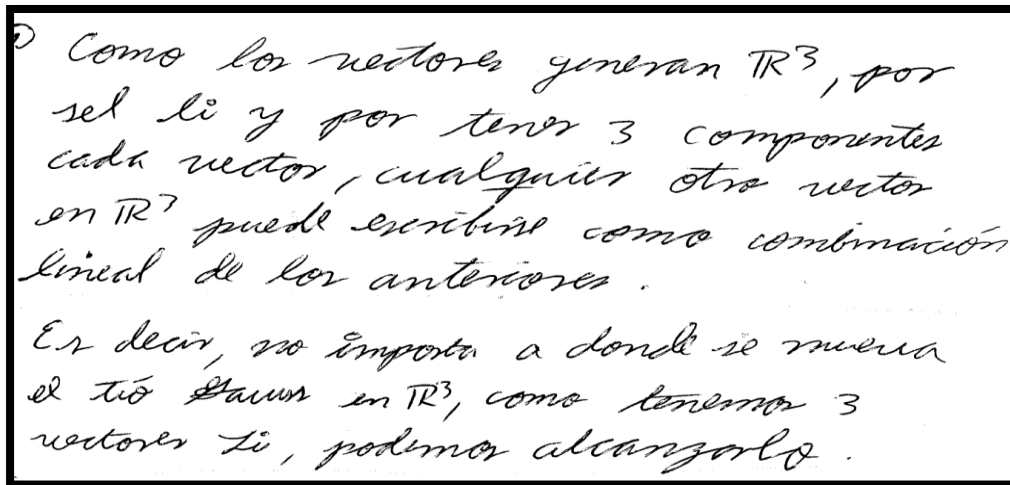 Como los vectores generan ℝ³, por
sel li y por tener 3 componentes
cada vector, cualquier otro vector
en ℝ³ puede escribirse como combinación
lineal de los anteriores.
Es decir, no importa a donde se mueva
el tió Gauss en ℝ³, como tenemos 3
vectores Li, podemos alcanzarlo.